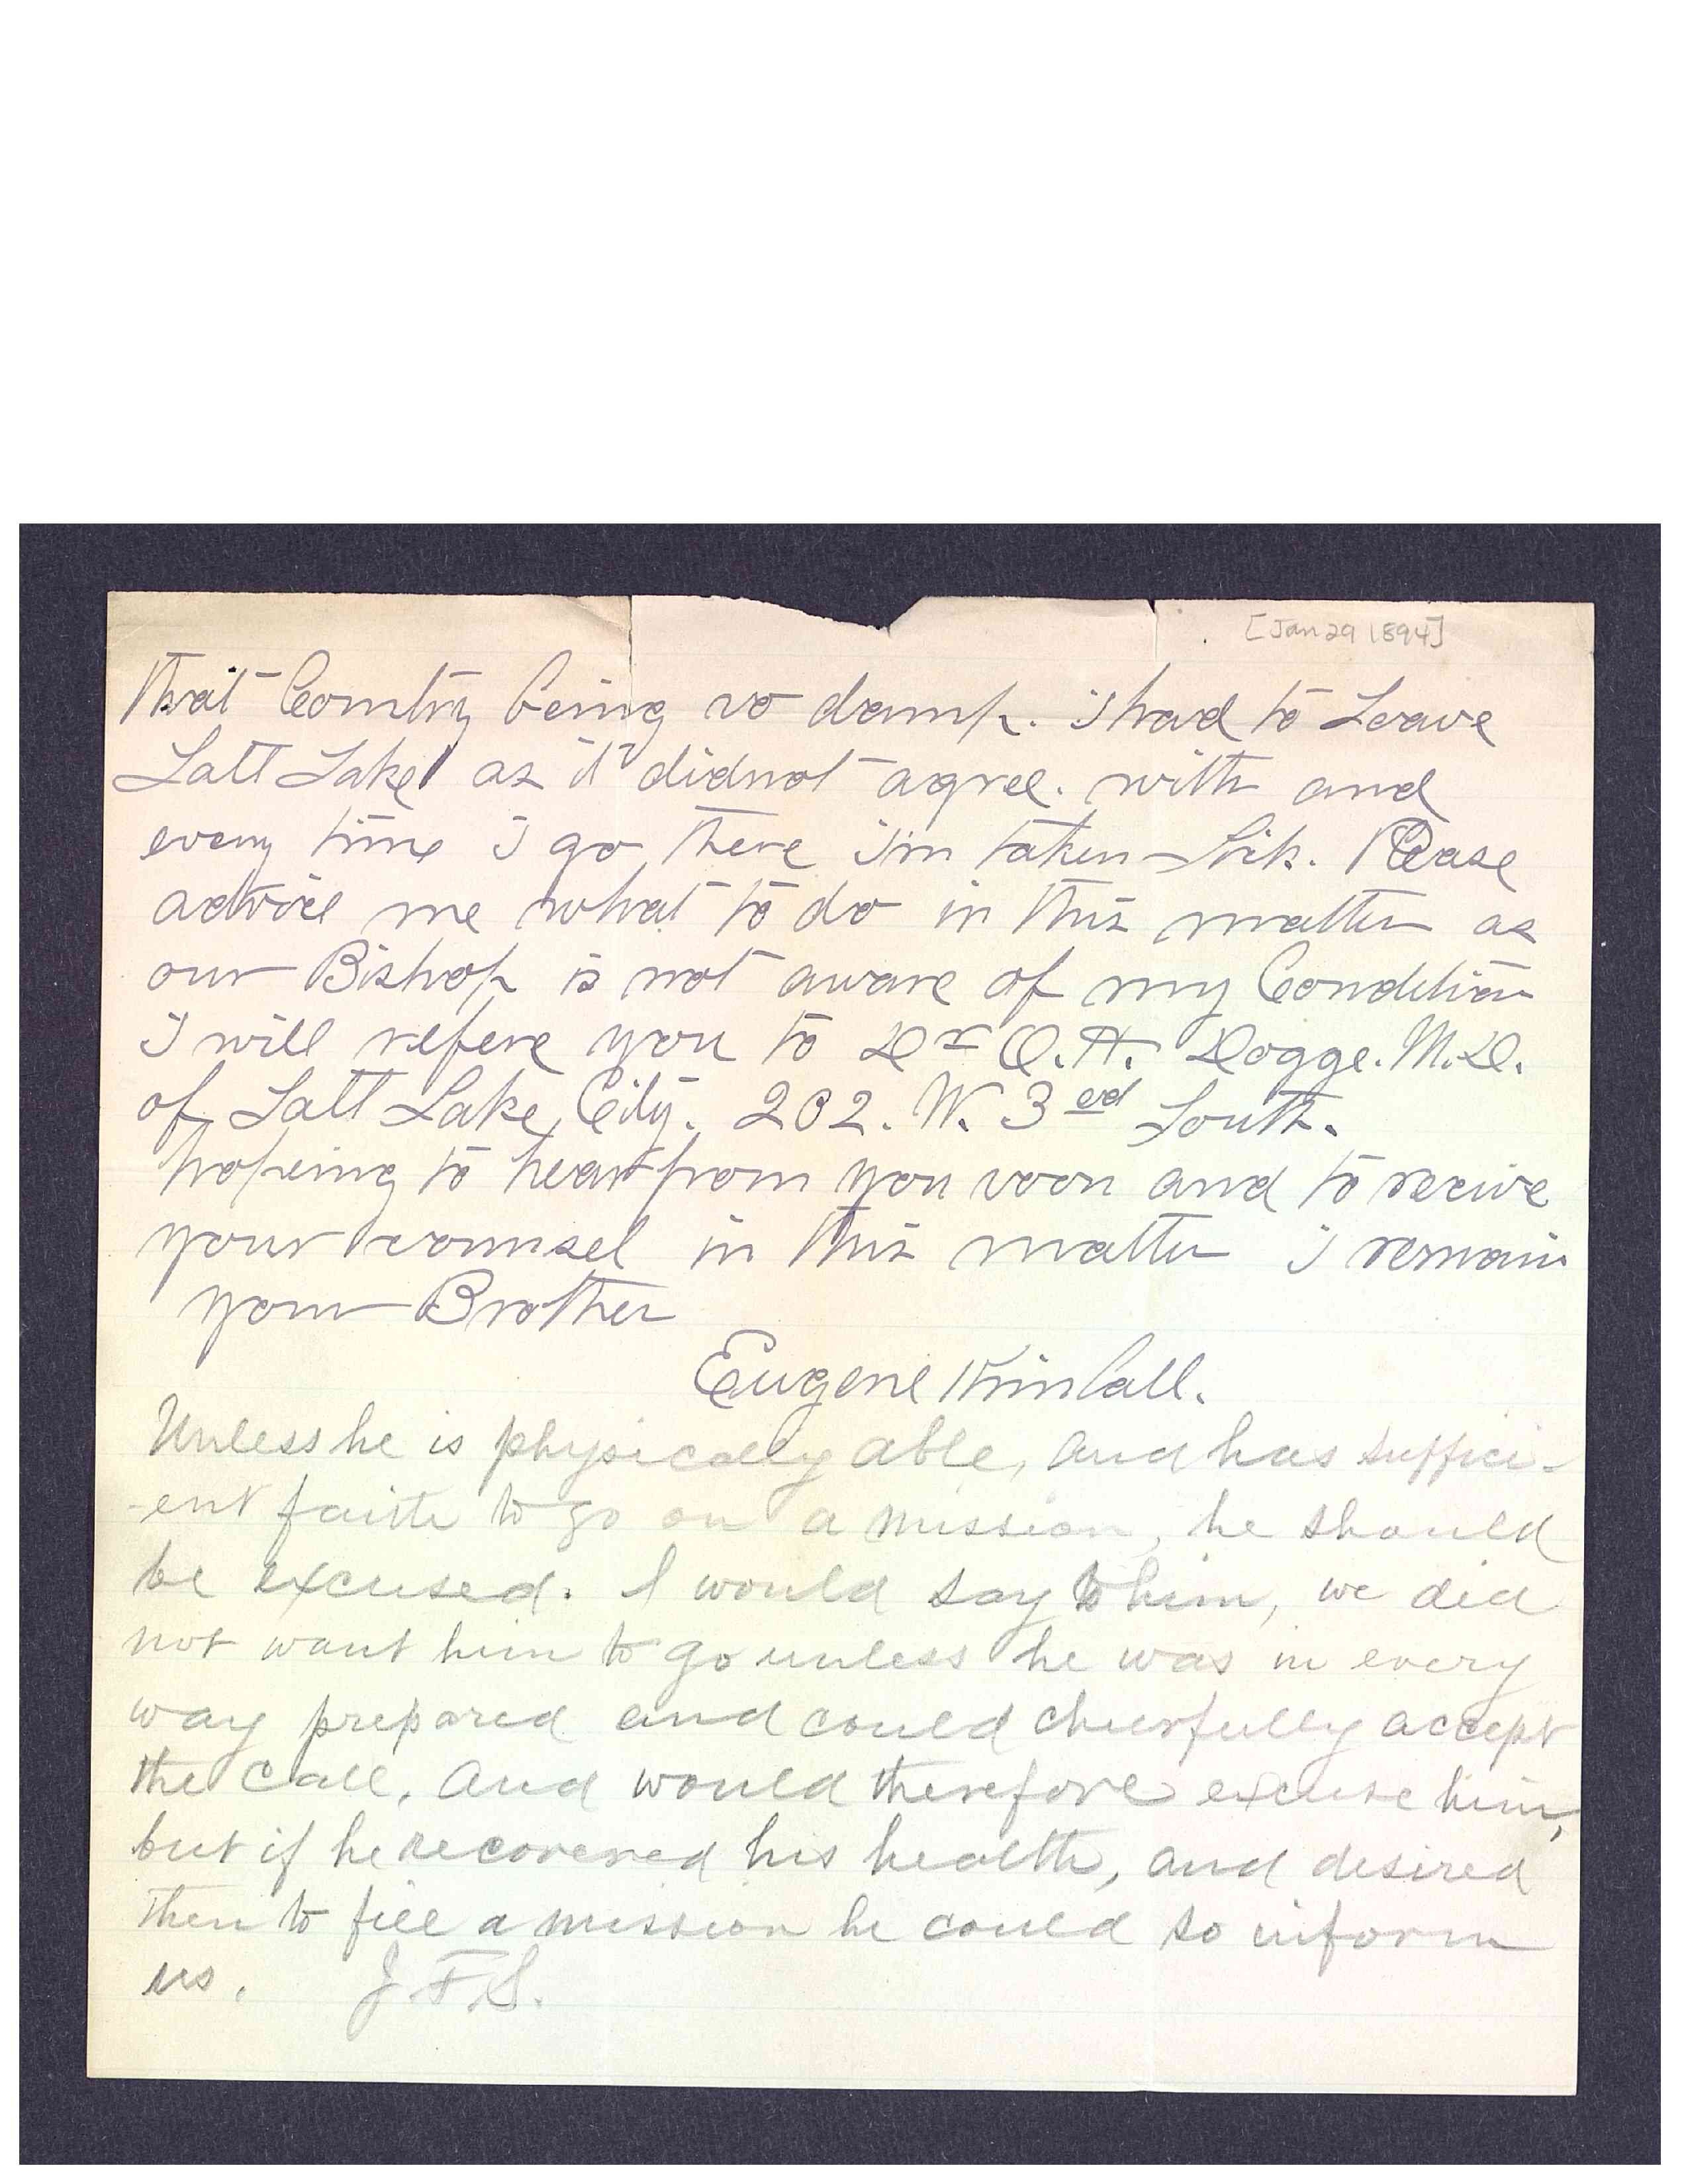 [Jan 29 1894]
that Country being so damp. i had to Leave
Salt Lake as it did not agree. with and
every time i go there i'm taken Sik. Please
advice me what to do in this matter as
our Bishop is not aware of my Condition
I will refere you to Dr O. H. Dogge. M.D.
of Salt Lake City. 202. W. 3rd South.
hopeing to hear from you soon and to recive
your counsel in this matter i remain
your Brother
Eugene Kimball.
Unless he is physically able, and has suffici-
-ent faith to go on a mission, he should
be excused. I would say to him, we did
not want him to go unless he was in every
way prepared and could cheerfully accept
the call. and would therefore excuse him,
but if he recovered his health, and desired
then to fill a mission he could so inform
us. J.F.S.